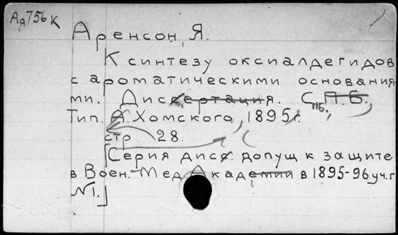 Ая756к
Аренсон, Я.
К синтезу оксиалдегидов
с ароматическими основания
ми. Диссертация. С.П.Б.,
Тип. А. Хомского, 1895 г.
стр 28.
Серия дисс. допущ к защите
в Воен. Мед Академии в 1895-96 уч. г
№1.